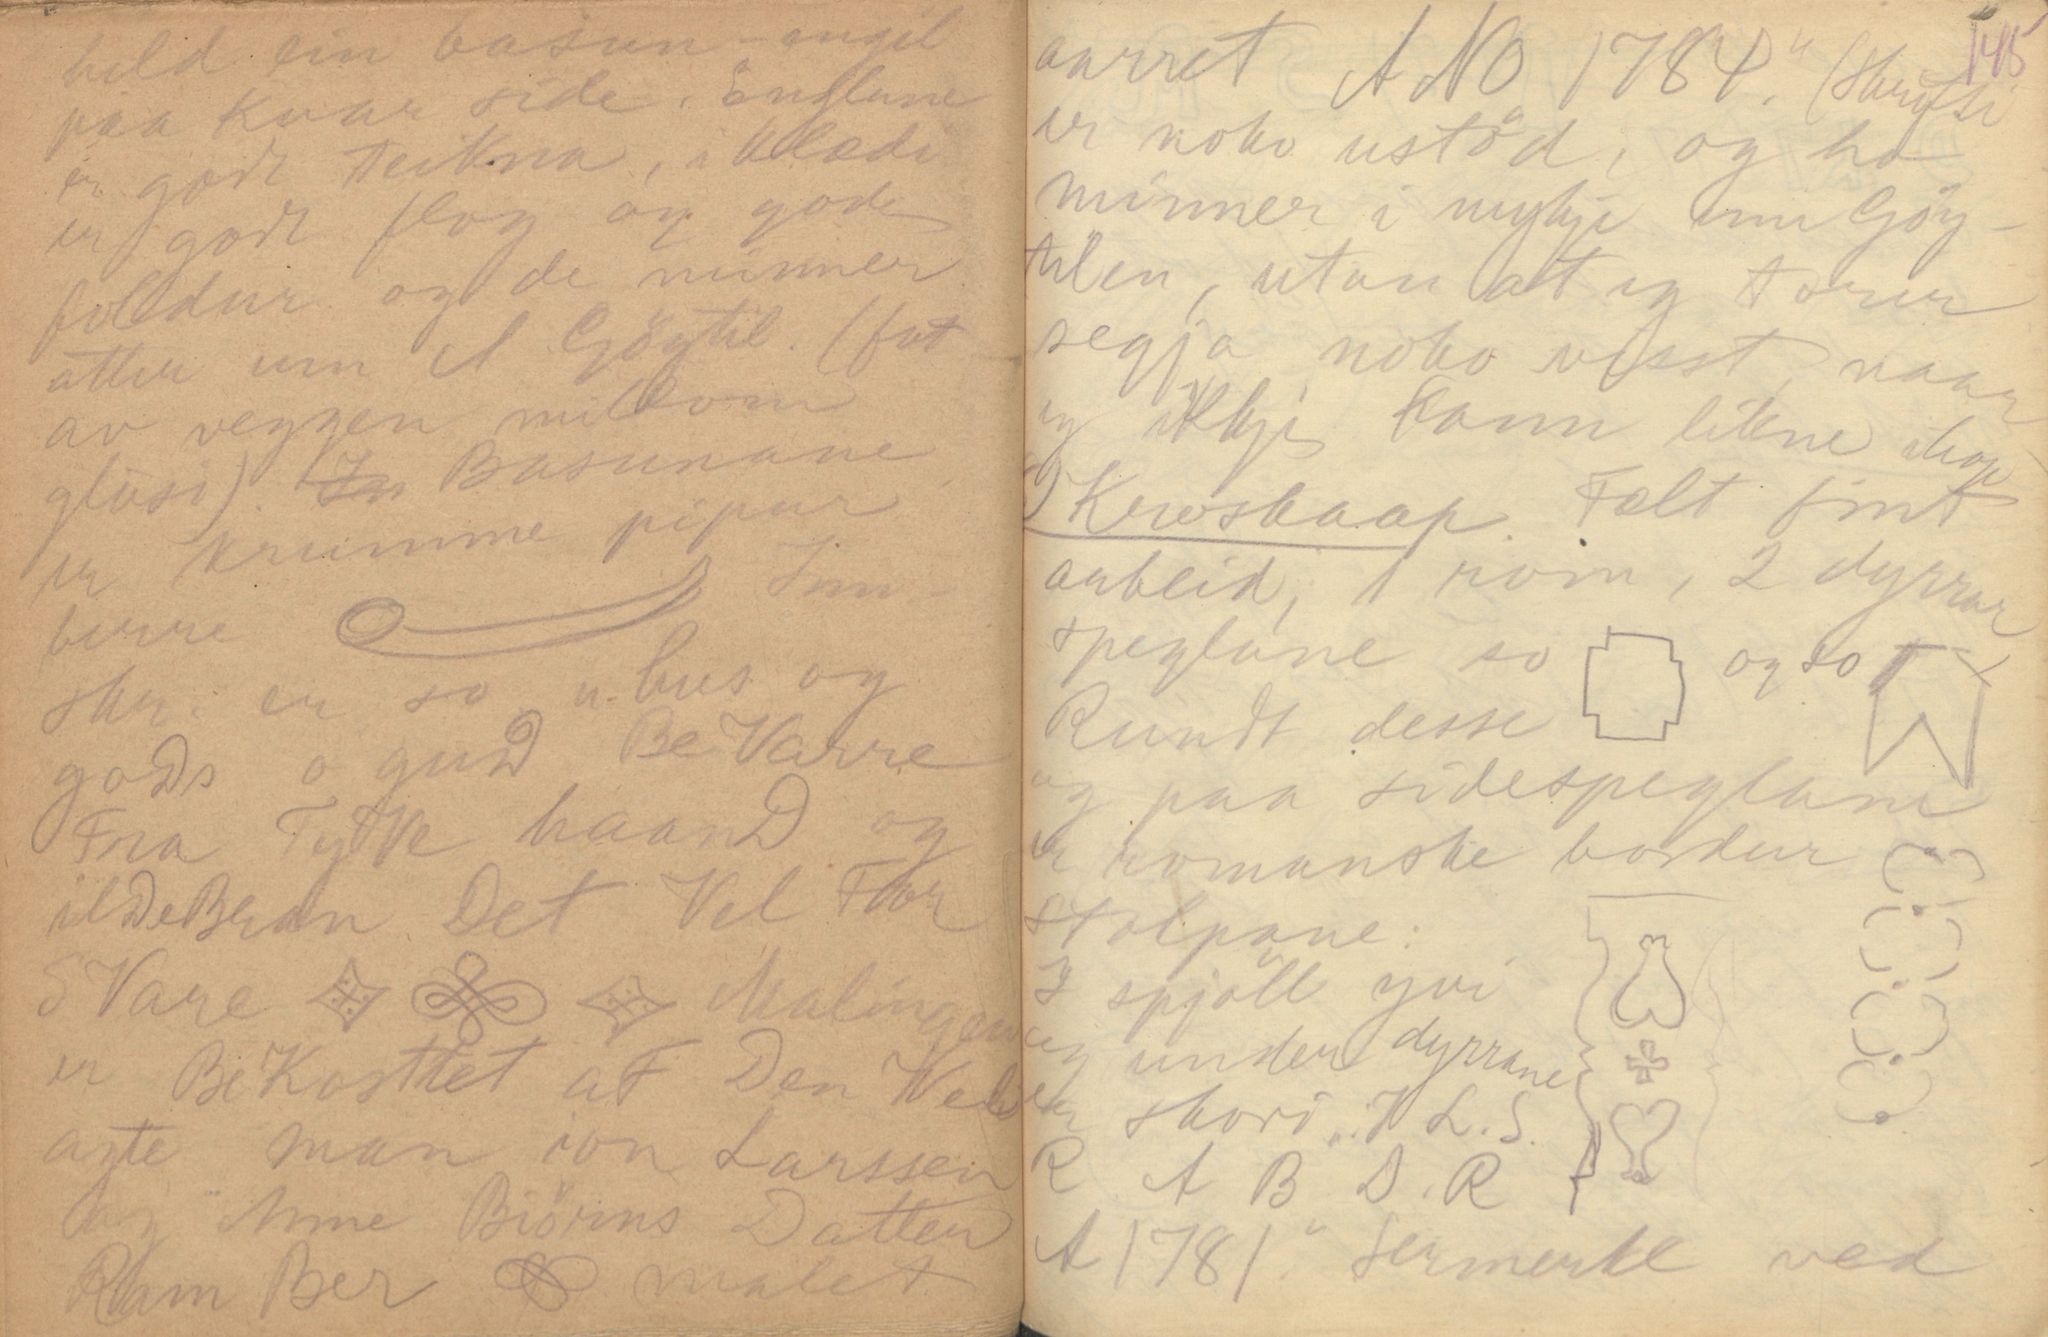 held ein basun-engil
paa kvar side. Englane
er godt teikna, i klædi
er godt flog og gode
foldur og de minner
atter um A Göytil. (fot
av veggen millom
glasi). Basunane
er krumme pipur
burre Inn-
skr. er so "hus og
goDs o guD BeVarre
Fra TyVe haanD og
ilDeBran Det Vel For
SVare Malingen
er BeKosttet aF Den Vel
agte man ion Larssen
og Anne Biörns Datter
Ram Ber malet
145
aarret ANO 1784." (Skrifti
er noko ustöd, og ho
minner i mykje um Göy-
tilen, utan at eg torer
segja noko visst, naar
eg ikkje kann likne ihop
Kleoskaap. Fælt fint
arbeid, 1 rom, 2 dyrrar
speglane so og so
Rundt desse
og paa sidespeglane
er romanske bordur
Stolpane:
I spjöll yvi
og under dyrrane
er skori "I L. S.
R A B D. R
A 1781" Sermerke ved